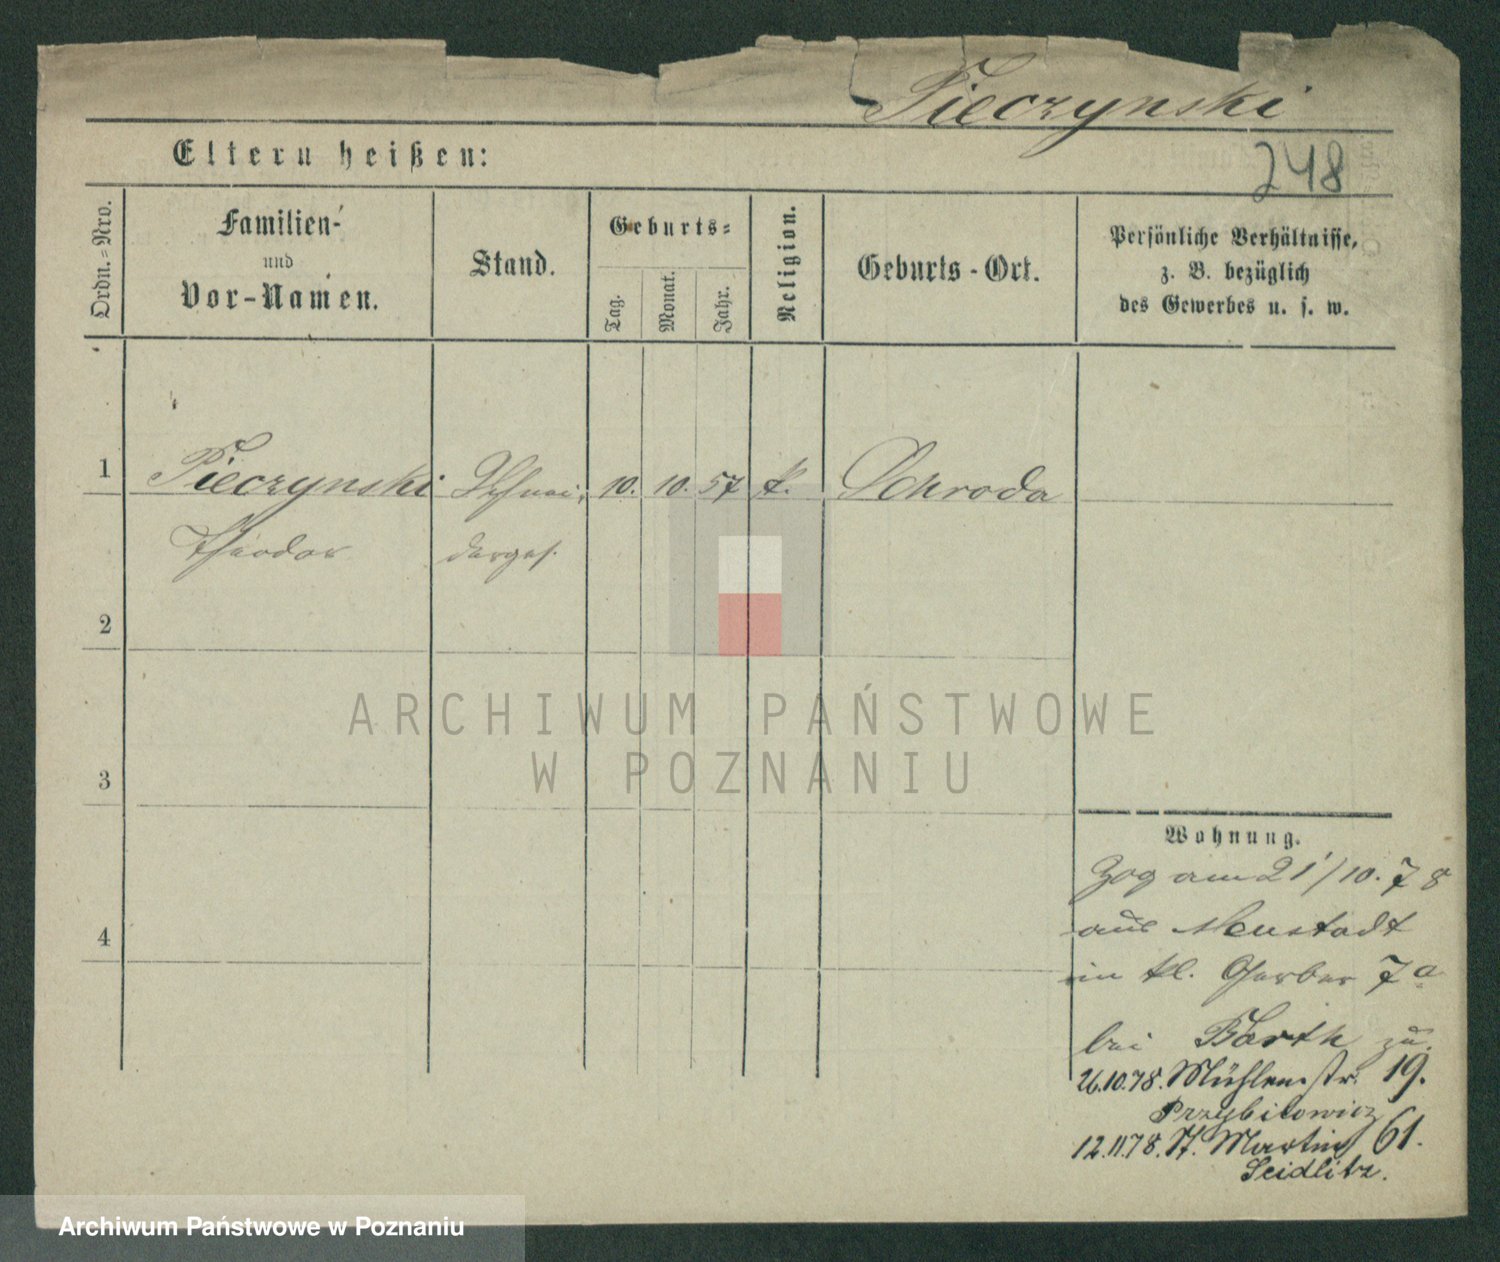 Pieczynski
248
Eltern heißen:
Ordn.-Nro.
Familien-
und
Vor-Namen.
Stand.
Geburts-
Tag.
Monat.
Jahr.
Religion.
Geburts-Ort.
Persönliche Verhältnisse,
z. B. bezüglich
des Gewerbes u. s. w.
1 Pieczynski Schnei- 10. 10. 57 k. Schroda
Theodor derges.
2
3
4
Wohnung.
Zog am 21/10. 78
aus Neustadt
in kl. Gerber 7a
bei Barth zu.
26.10.78. Mühlenstr. 19.
Przybilowicz
12.11.78. St. Martin 61.
Seidlitz.
ARCHIWUM PAŃSTWOWE
W POZNANIU
Archiwum Państwowe w Poznaniu